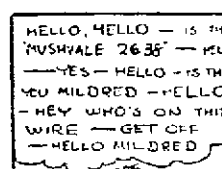 HELLO, HELLO — IS
"MUSHVALE 2638" —
— YES — HELLO - IS
YOU MILDRED - HELLO
- HEY WHO'S ON THIS
WIRE — GET OFF
— HELLO MILDRED